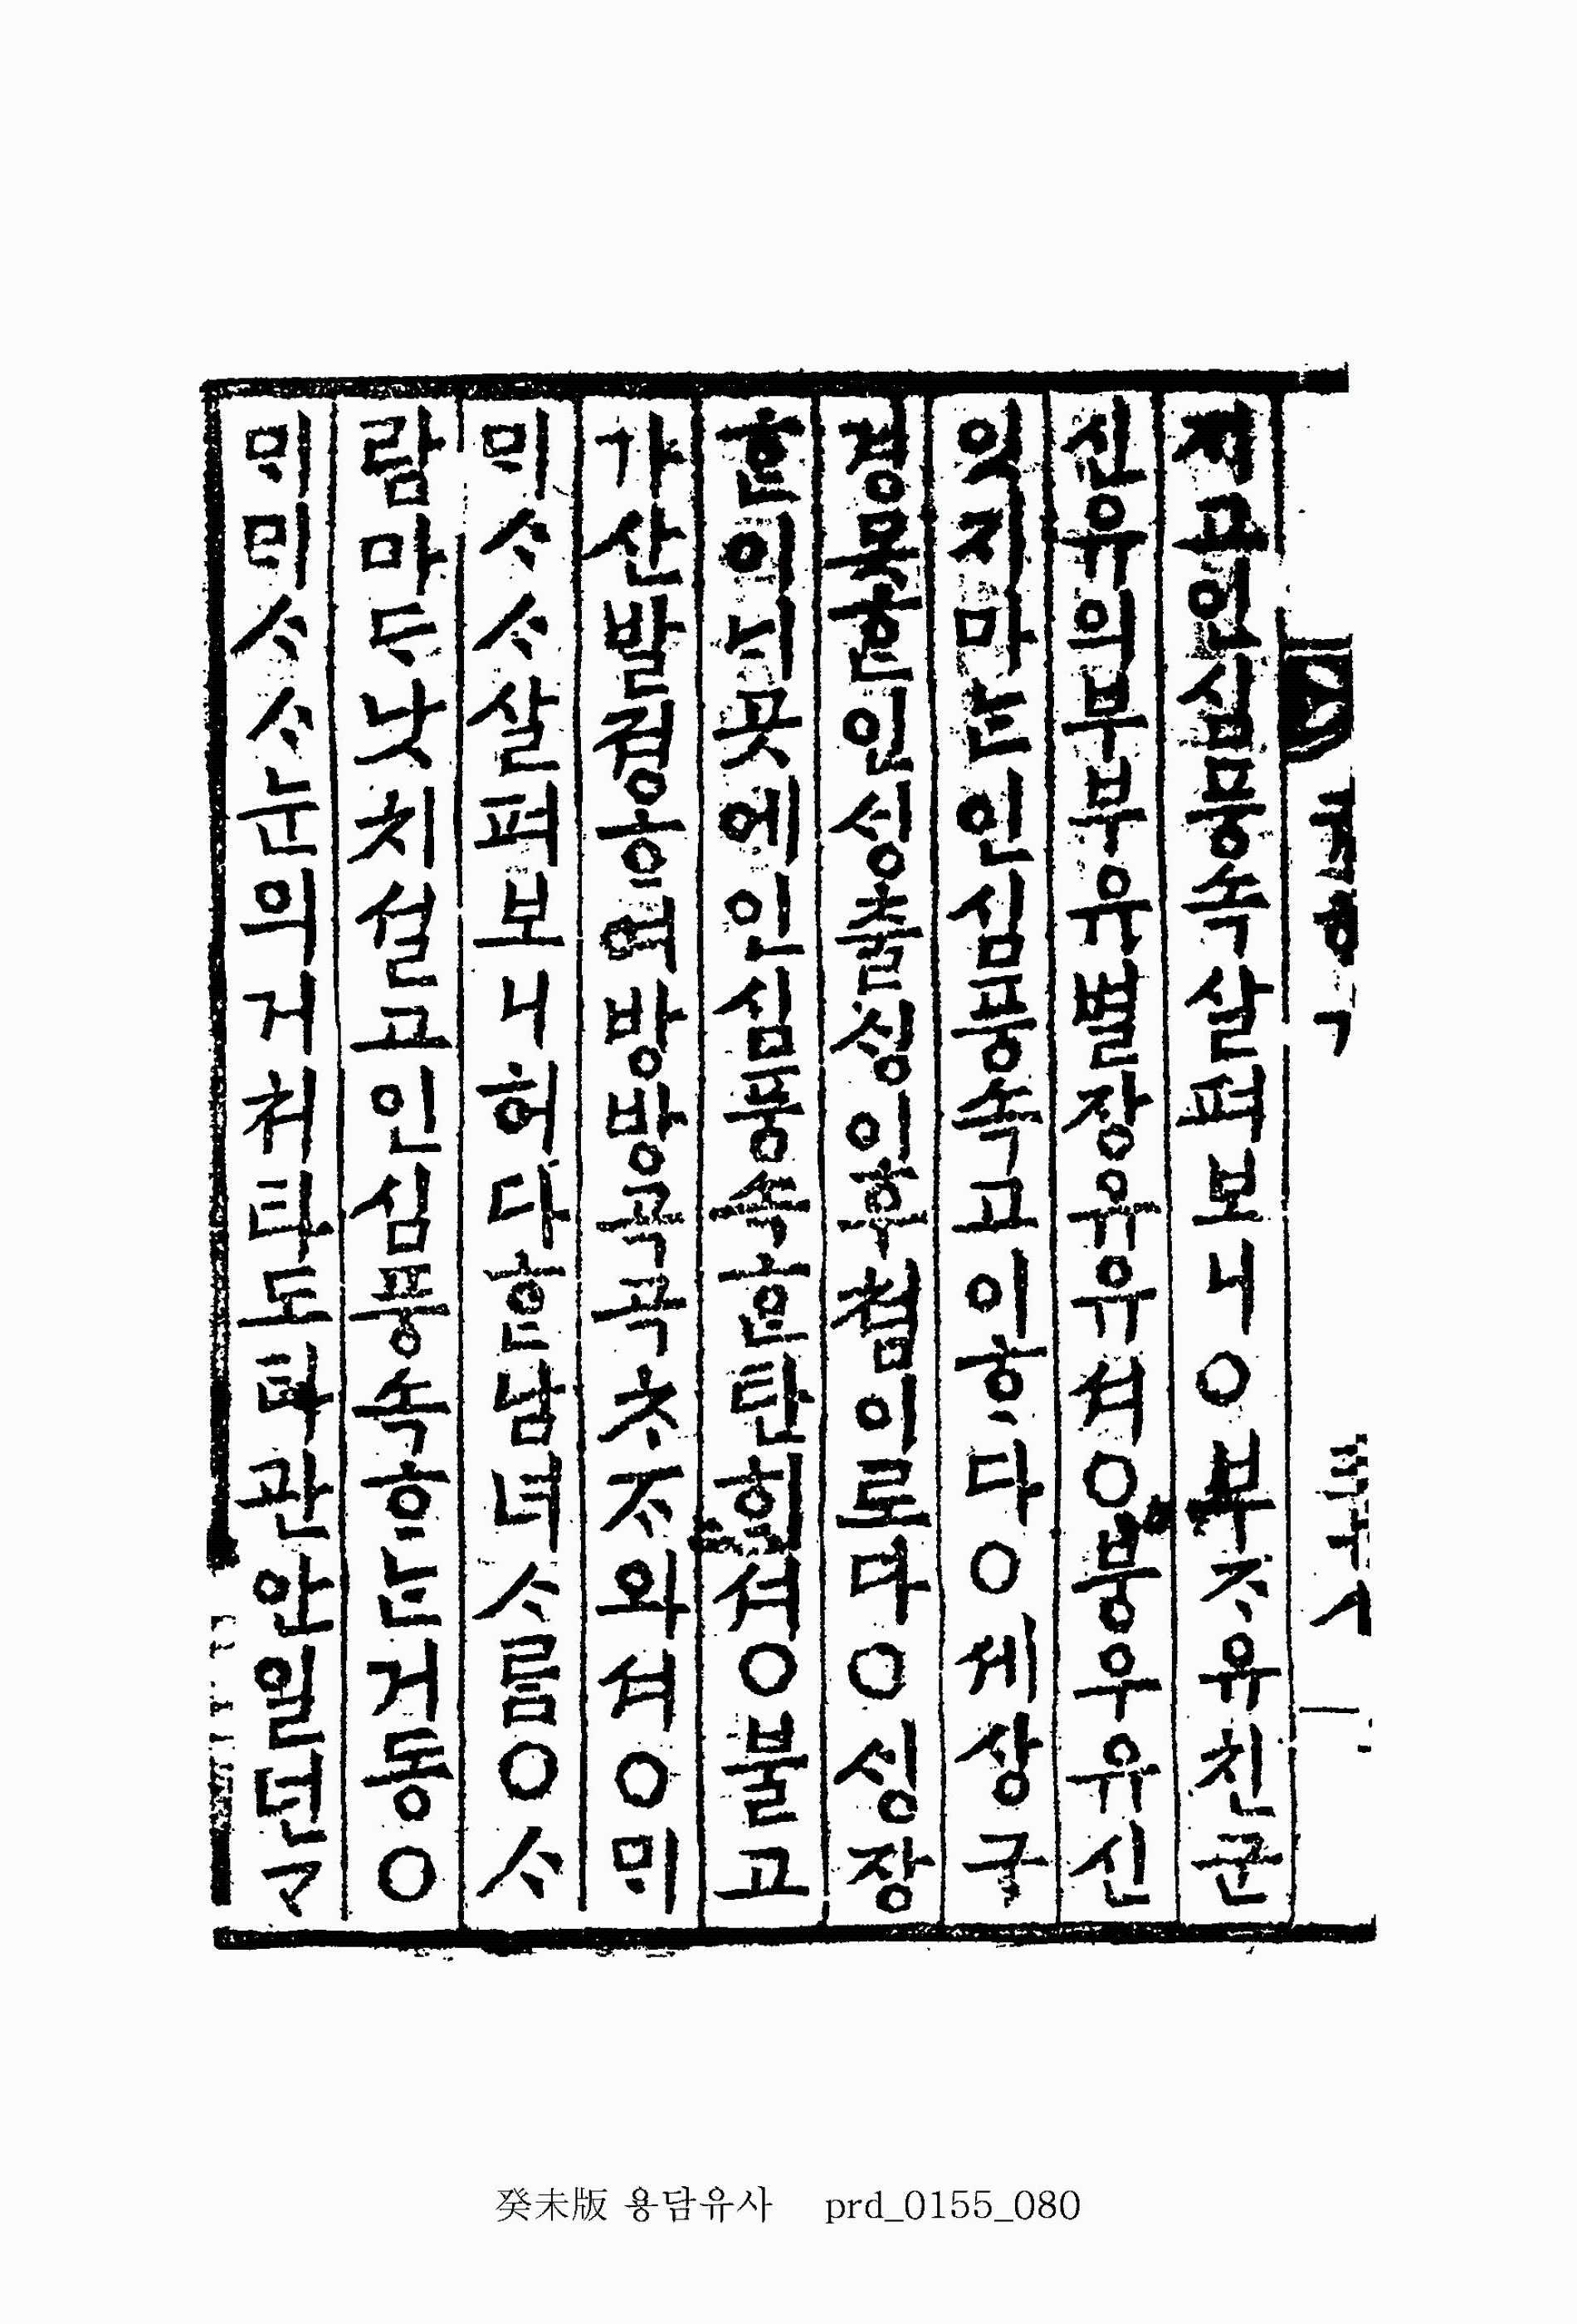 지고인심풍속살펴보니○부ᄌᆞ유친군
신유의부부유별장유유셔○붕우유신
잇지마ᄂᆞᆫ인심풍속고이ᄒᆞ다○셰상구
경못ᄒᆞᆫ인ᄉᆡᆼ출ᄉᆡᆼ이후쳠이로다○ᄉᆡᆼ장
ᄒᆞᆫ이ᄂᆡ곳에인심풍속ᄒᆞᆫ탄ᄒᆡ셔○불고
가산발졍ᄒᆞ여방방곡곡ᄎᆞᄌᆞ와셔○ᄆᆡ
ᄆᆡᄉᆞᄉᆞ살펴보니허다ᄒᆞᆫ남녀ᄉᆞ름○ᄉᆞ
람마ᄃᆞ낫치셜고인심풍속ᄒᆞᄂᆞᆫ거동○
ᄆᆡᄆᆡᄉᆞᄉᆞ눈의거쳐타도타관안일넌ᄀᆞ
癸未版 용담유사 prd_0155_080